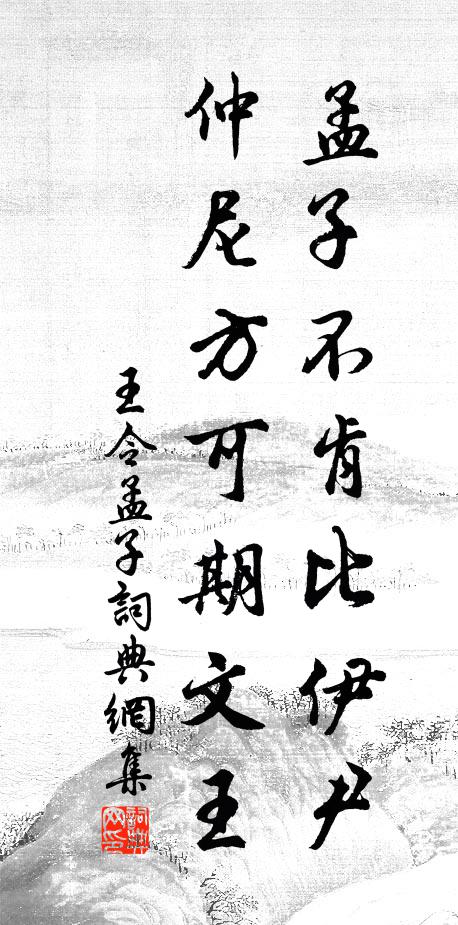 孟子不肯比伊尹
仲尼方可期文王
王令孟子詞典網集